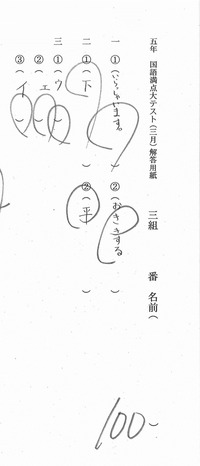 五年 国語満点大テスト(三月)解答用紙
三組 番 名前(
一 ①(いらっしゃいます。) ②(おききする
二 ①(下) ②(平)
三 ①(ウ)
②(エ)
③(イ)
100